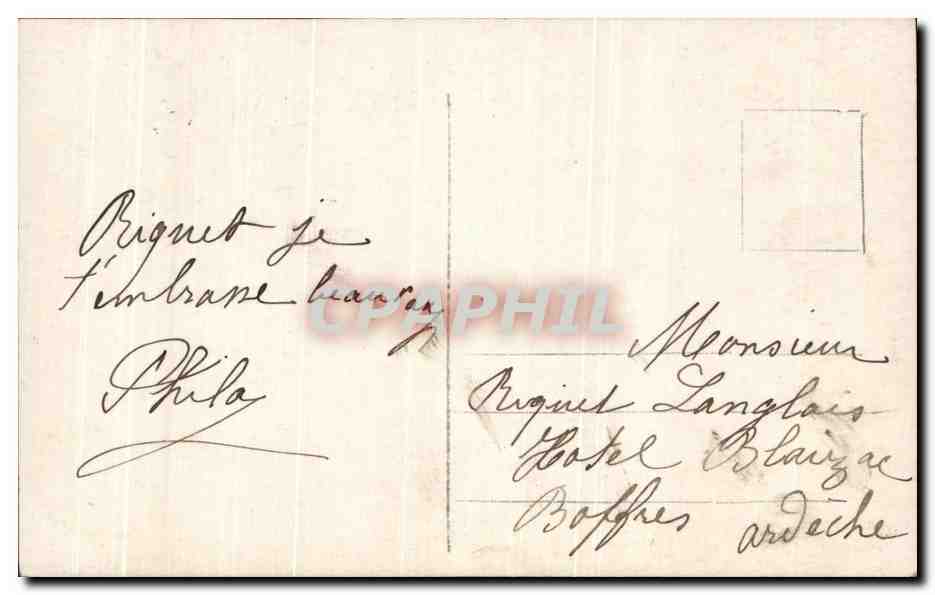 Riquet je
t'embrasse beaucoup
Phila
CPAPHIL
Monsieur
Riquet Langlais
Hotel Blaizac
Boffres
ardèche